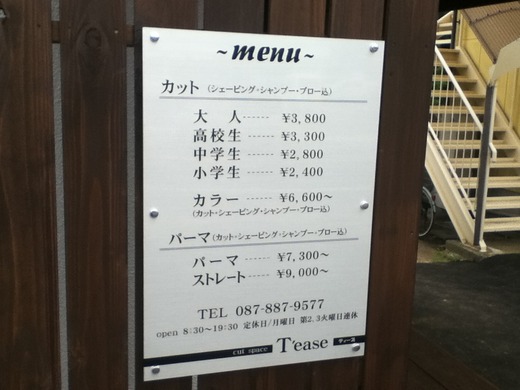 ~menu~
カット (シェービング・シャンプー・ブロー込)
大人------ ¥3,800
高校生------ ¥3,300
中学生------ ¥2,800
小学生------ ¥2,400
カラー------ ¥6,600～
(カット・シェービング・シャンプー・ブロー込)
パーマ (カット・シェービング・シャンプー・ブロー込)
パーマ------ ¥7,300～
ストレート---- ¥9,000～
TEL 087-887-9577
open 8:30~19:30 定休日/月曜日 第2.3火曜日連休
cut space T'ease ティーズ